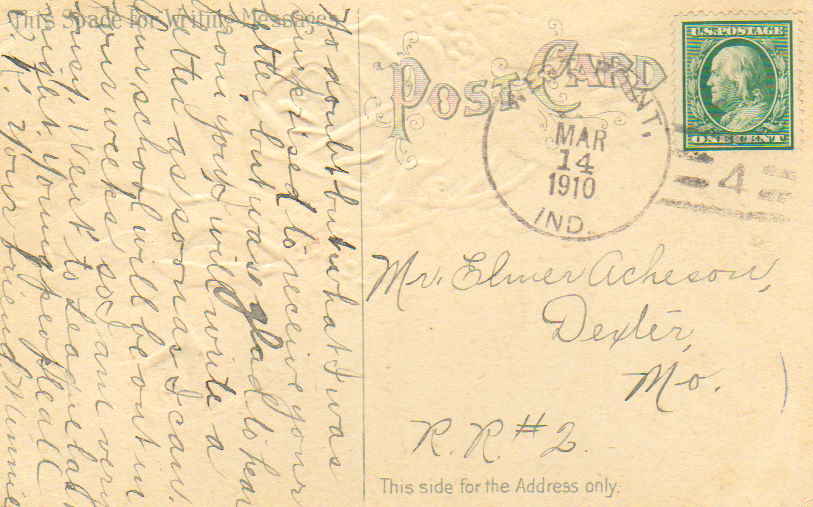 This Space for Writing Messages
No doubt but what I was
surprised to receive your
letter but was glad to hear
from you, will write a
letter as soon as I can.
Our school will be out in
four weeks so I am very
busy. Went to League last
night. Young people all
Your friend Minnie
POST CARD
NT,
MAR
14
1910
IND.
4
U.S. POSTAGE
ONE CENT
Mr. Elmer Acheson,
Dexter,
Mo.
R. R. #2.
This side for the Address only.